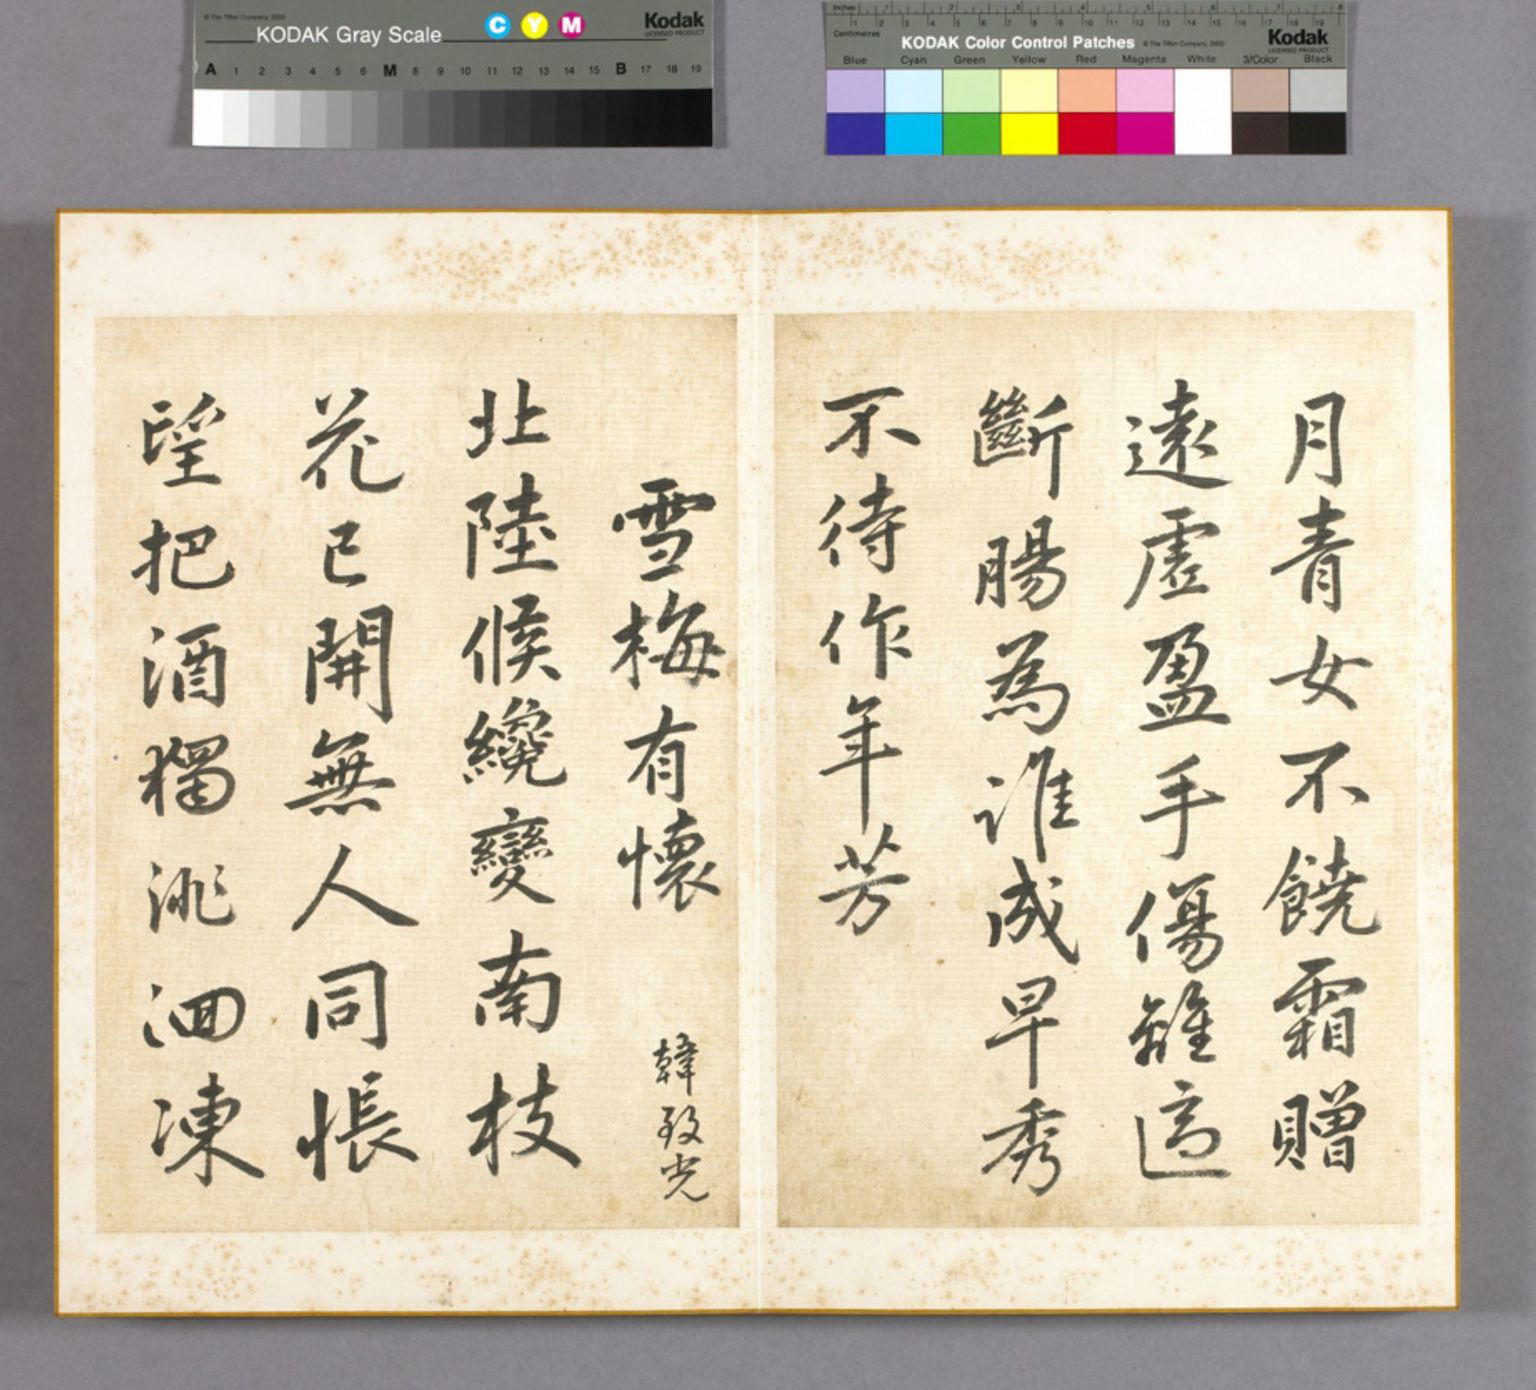 © The Tiffen Company, 2000
KODAK Gray Scale
C Y M
Kodak
LICENSED PRODUCT
A 1 2 3 4 5 6 M 8 9 10 11 12 13 14 15 B 17 18 19
Inches 1 2 3 4 5 6 7 8
1 2 3 4 5 6 7 8 9 10 11 12 13 14 15 16 17 18 19
Centimetres
KODAK Color Control Patches
© The Tiffen Company, 2000
Kodak
LICENSED PRODUCT
Blue Cyan Green Yellow Red Magenta White 3/Color Black
月青女不饒霜贈
遠虛盈手傷離適
斷腸為誰成早秀
不待作年芳
雪梅有懷
韓致光
北陸候纔變南枝
花已開無人同悵
望把酒獨洮洄凍